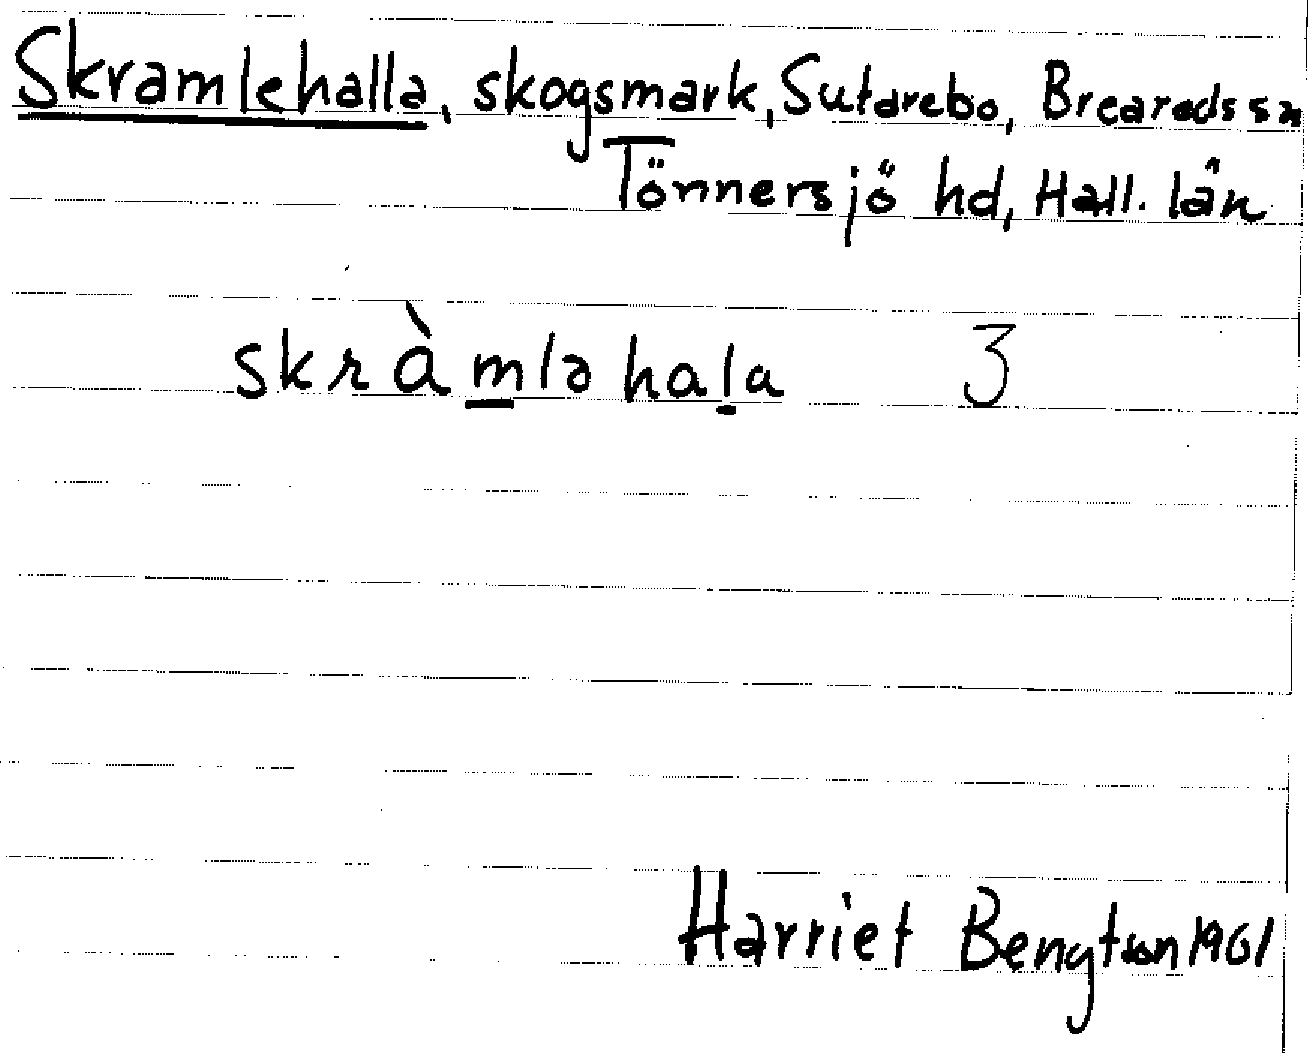 Skramlehalla, skogsmark, Sutarebo, Brearods sn
Tönnersjö hd, Hall. län
skràmlə hala 3
Harriet Bengtson 1961